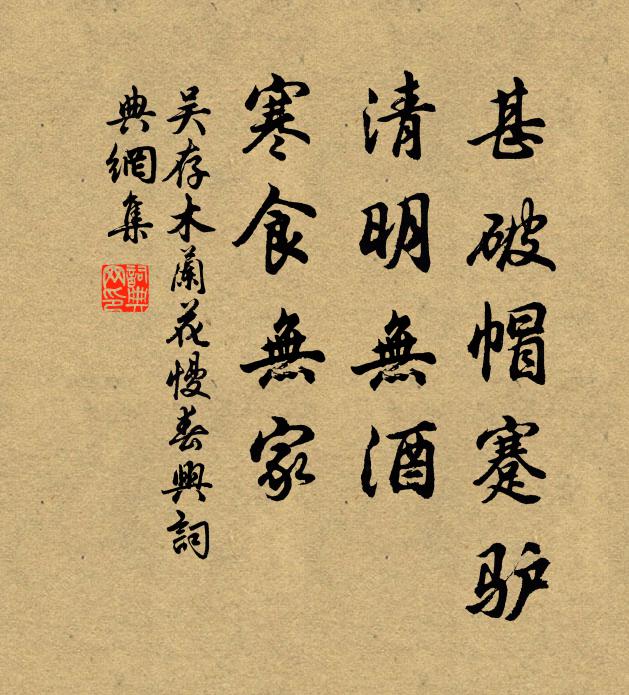 甚破帽蹇驴
清明無酒
寒食無家
吴存木蘭花慢春興詞
典網集
詞典
网印